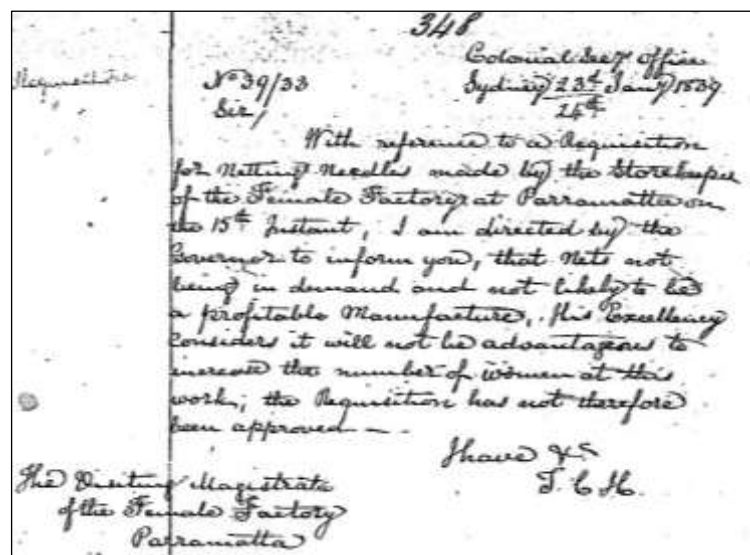 348
Colonial Secys Office
Requisitions
No 39/33
Sydney 23d Jany 1839
24th
Sir,
With reference to a Requisition
for Netting Needles made by the Storekeeper
of the Female Factory at Parramatta on
the 15th Instant, I am directed by the
Governor to inform you, that Nets not
being in demand and not likely to be
a profitable Manufacture, His Excellency
considers it will not be advantageous to
increase the number of women at this
work; the Requisition has not therefore
been approved —.
I have &c
T. C. H.
The Visiting Magistrate
of the Female Factory
Parramatta